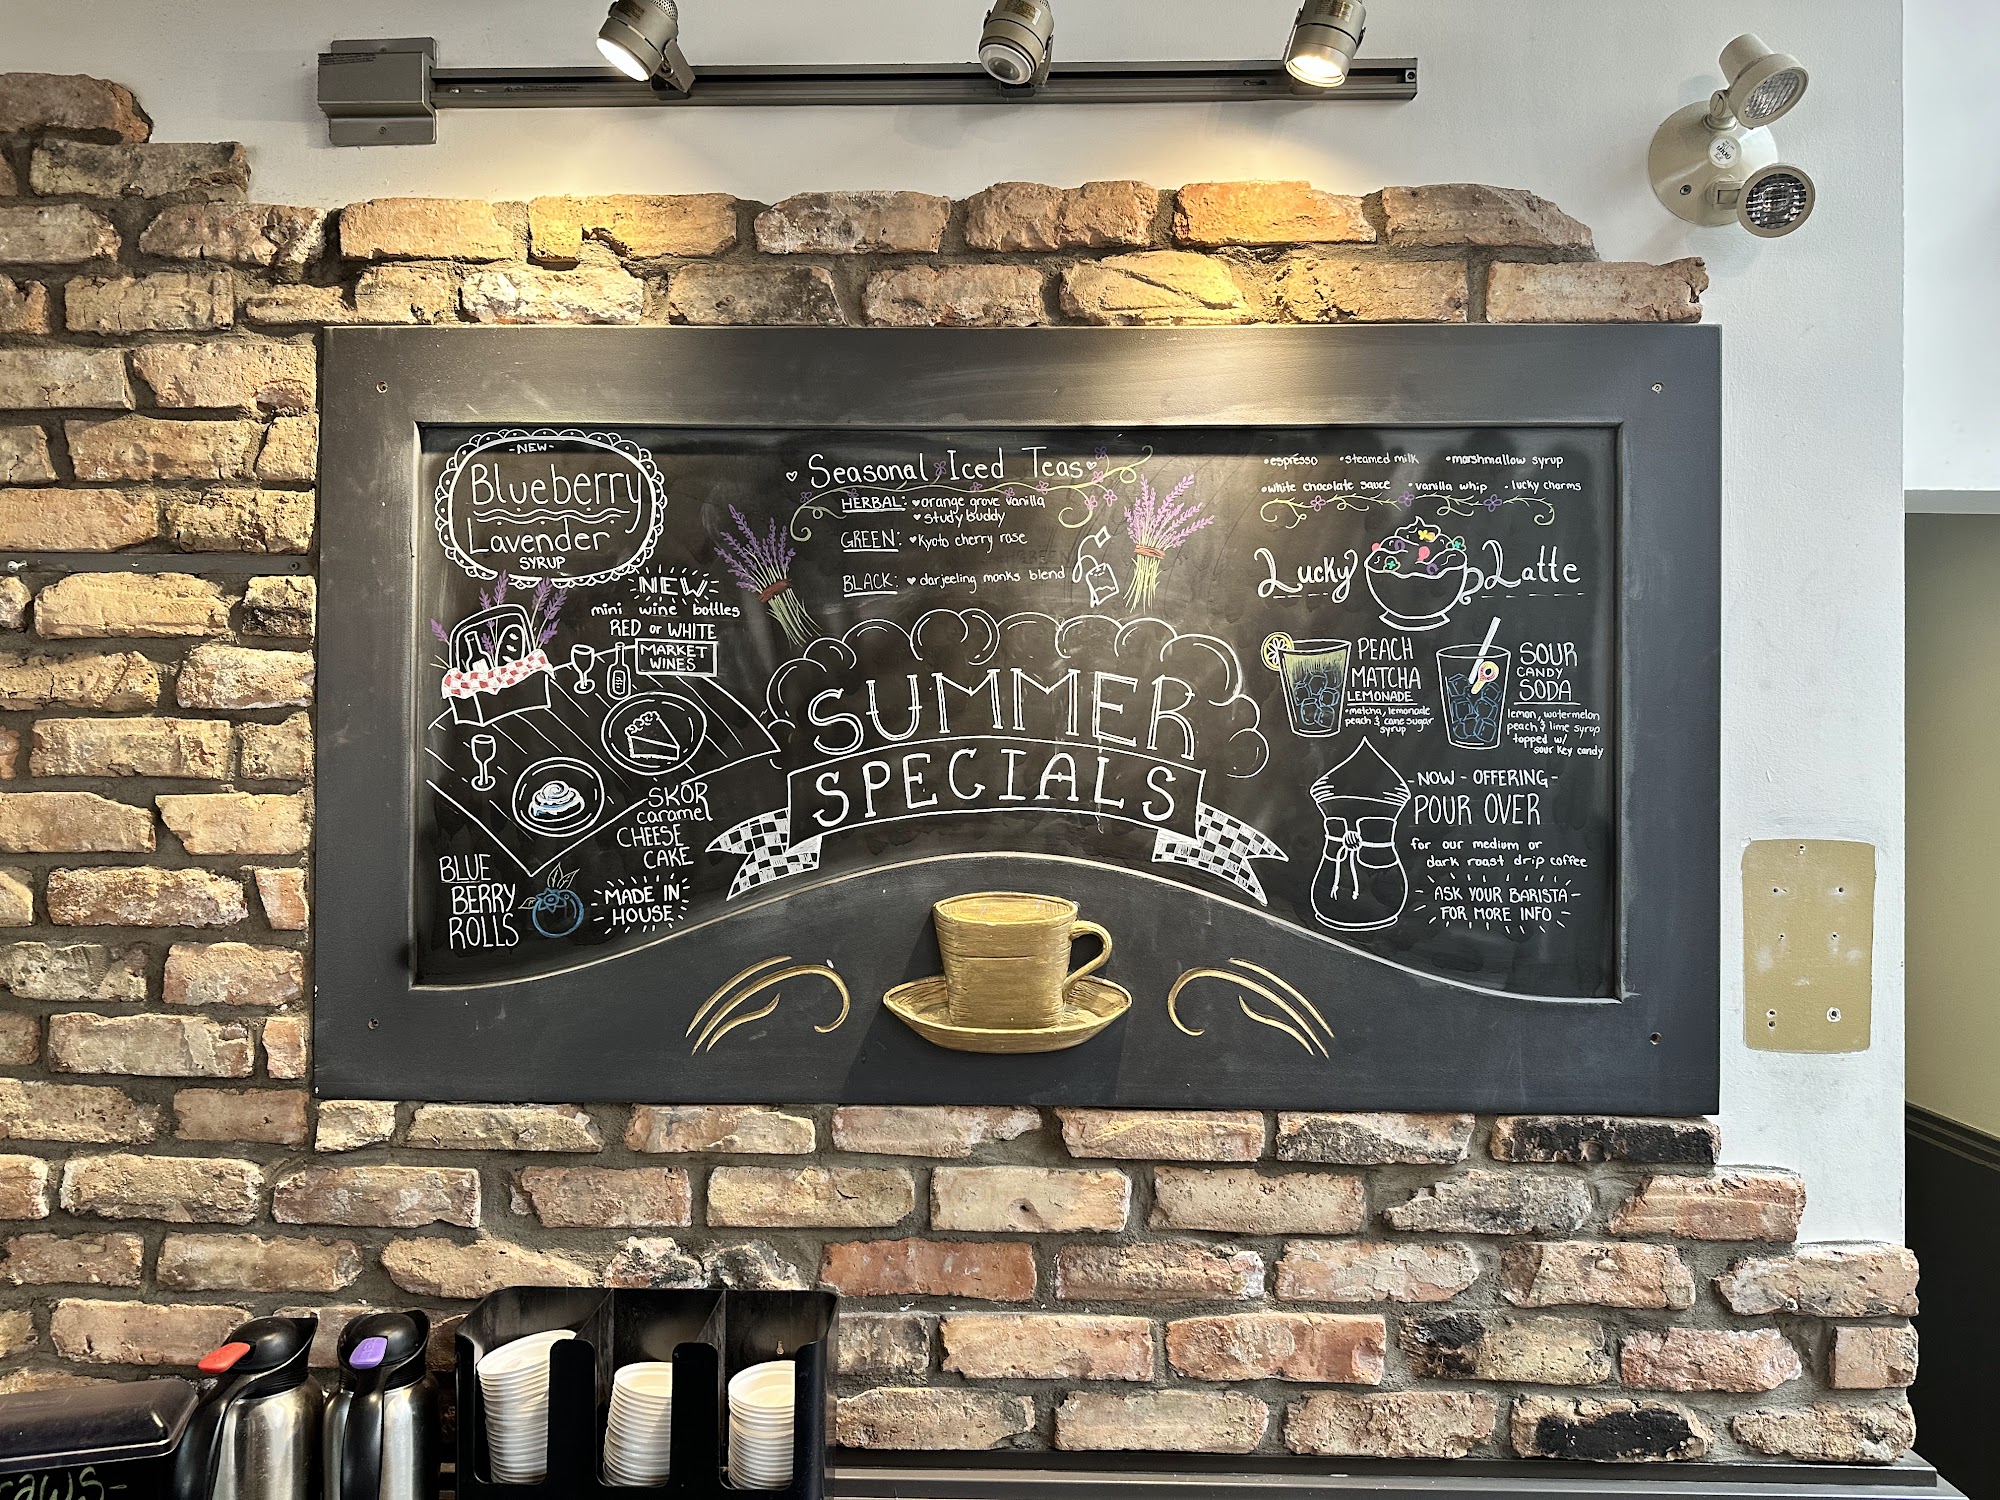 -NEW-
Blueberry
Lavender
SYRUP
NEW
mini wine bottles
RED or WHITE
MARKET
WINES
SKOR
caramel
CHEESE
CAKE
BLUE
BERRY
ROLLS
MADE IN
HOUSE
Seasonal Iced Teas
HERBAL: ♥orange grove vanilla
♥study buddy
GREEN: ♥Kyoto cherry rose
BLACK: ♥ darjeeling monks blend
SUMMER
SPECIALS
•espresso •steamed milk •marshmallow syrup
•white chocolate sauce •vanilla whip •lucky charms
Lucky Latte
PEACH
MATCHA
LEMONADE
•matcha, lemonade
peach & cane sugar
syrup
SOUR
CANDY
SODA
lemon, watermelon
peach & lime syrup
topped w/
sour key candy
-NOW-OFFERING-
POUR OVER
for our medium or
dark roast drip coffee
-ASK YOUR BARISTA-
-FOR MORE INFO-
raws-